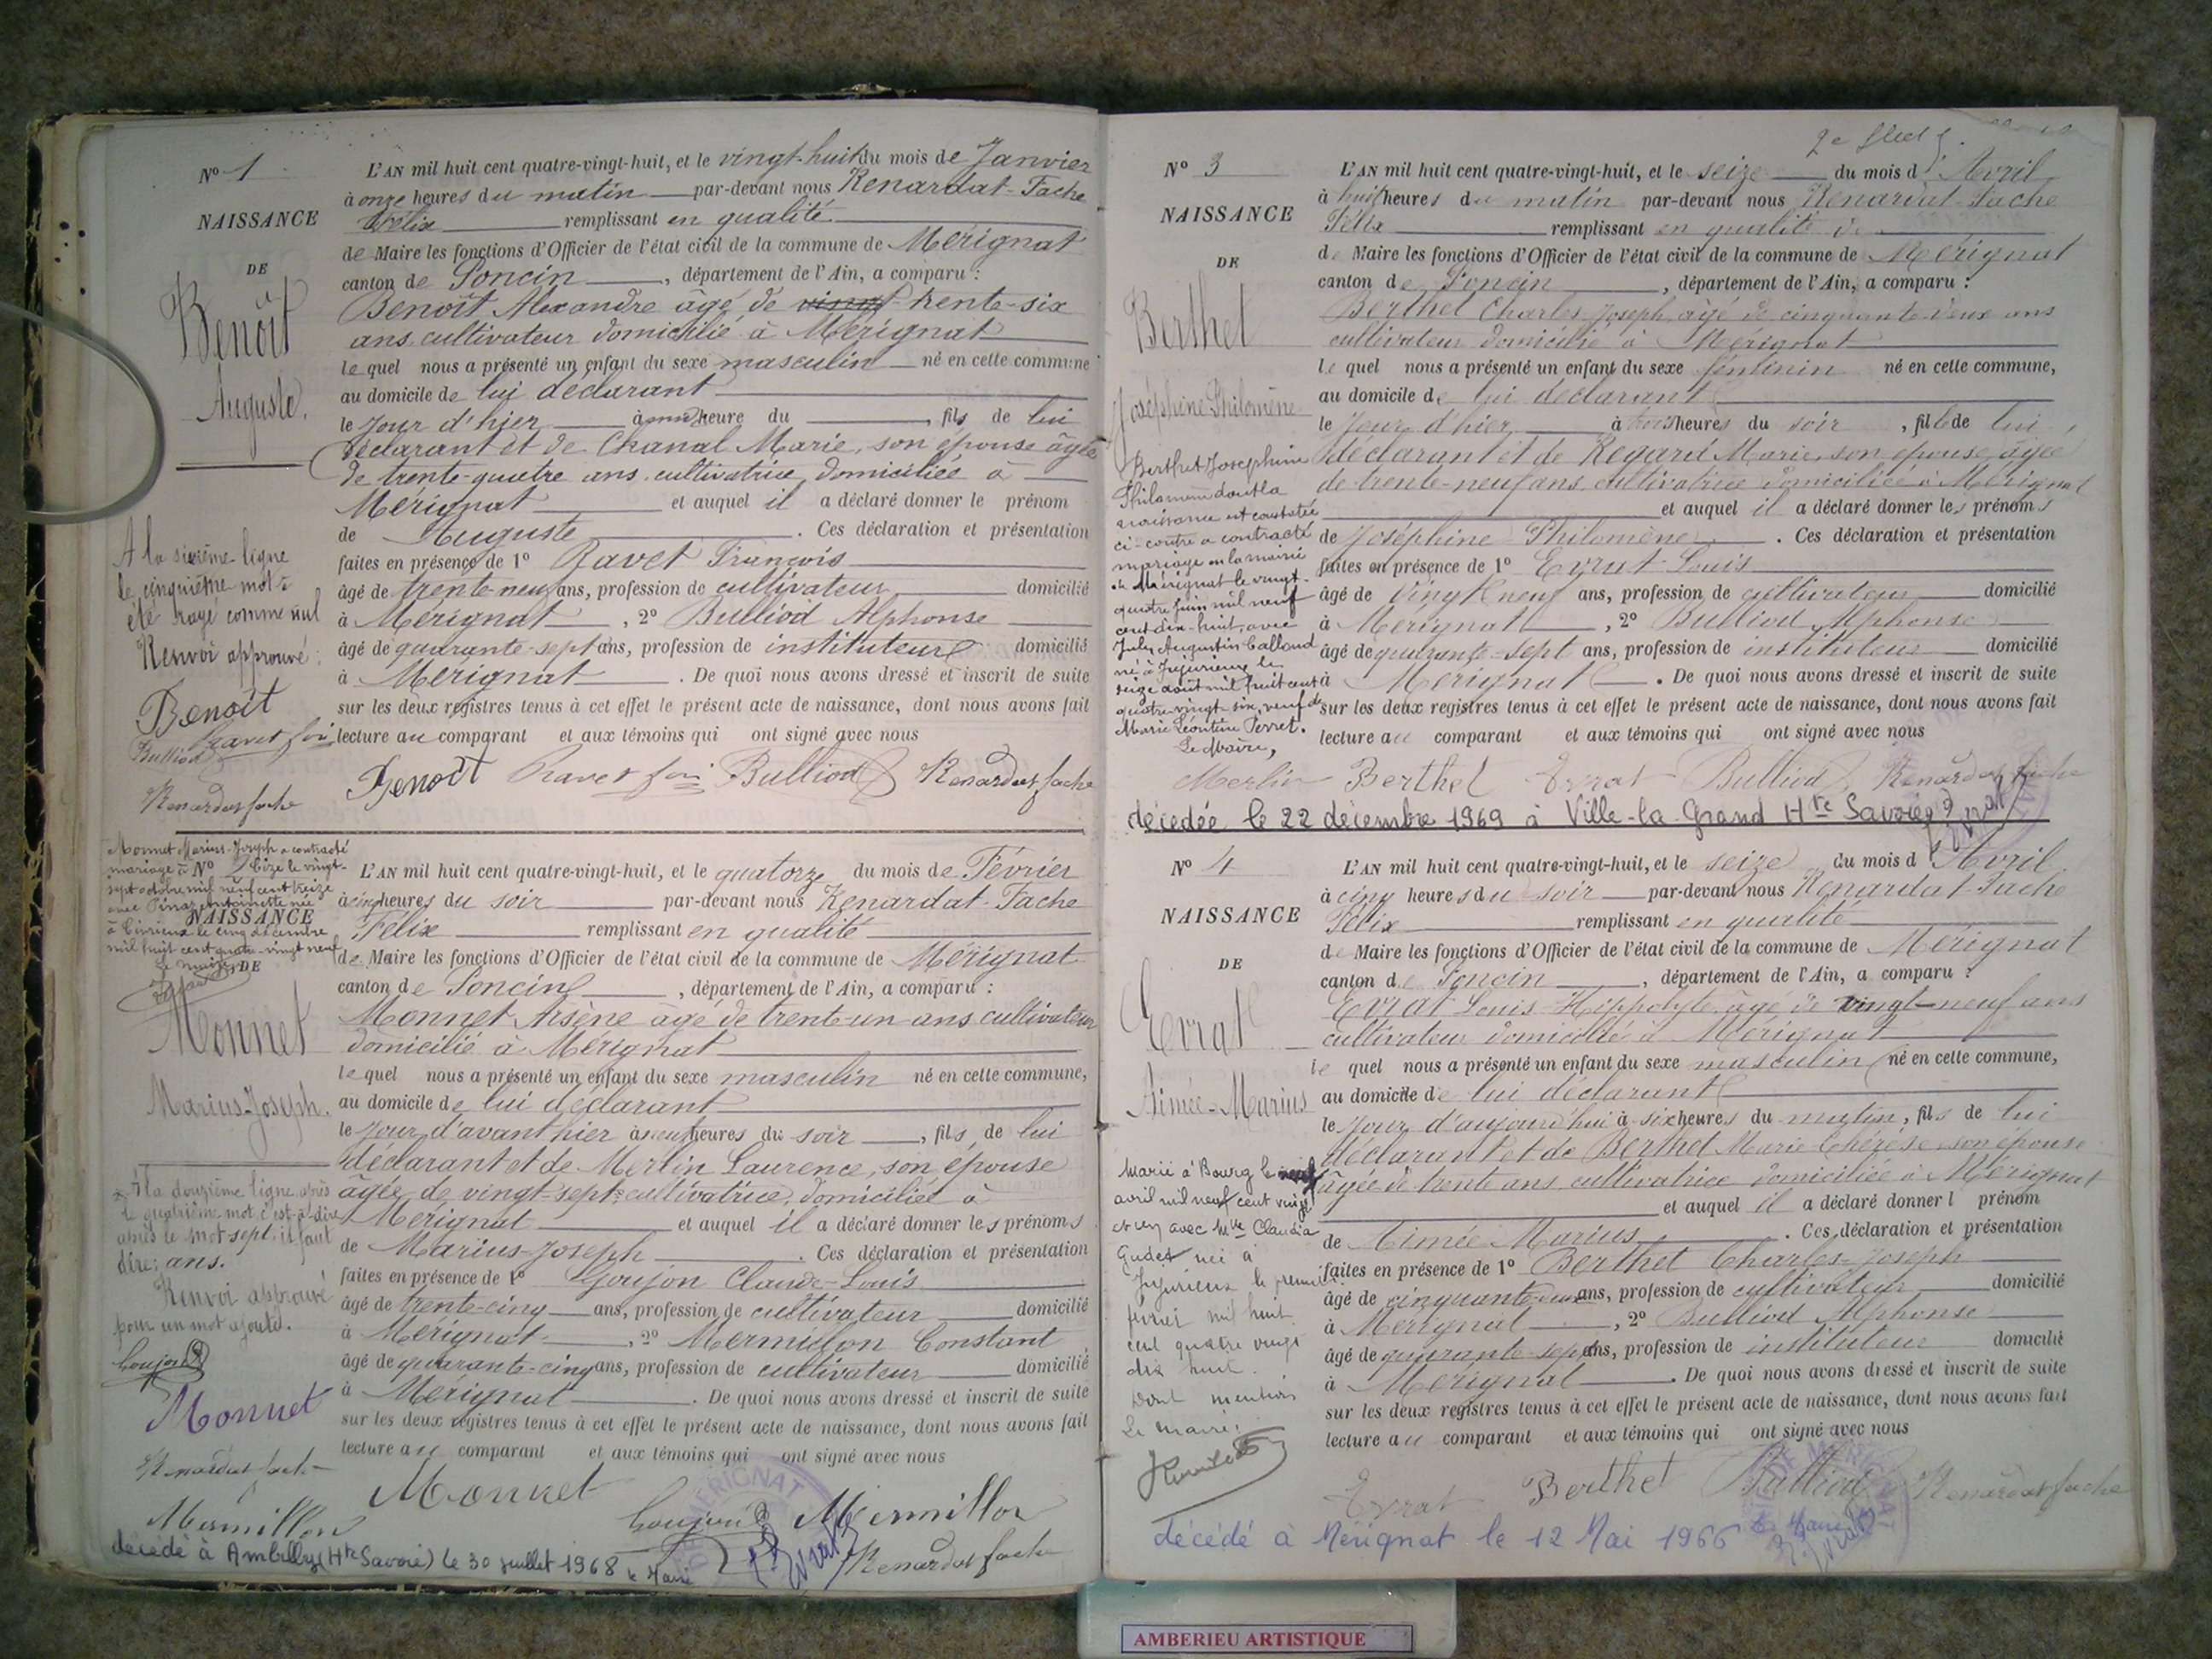 Nº 1
NAISSANCE
DE
Benoît
Auguste.
A la sixième ligne
le cinquième mot a
été rayé comme nul
Renvoi approuvé :
Benoît
Ravet
Bulliod
Renardat fache
L'AN mil huit cent quatre-vingt-huit, et le vingt-huit du mois de Janvier
à onze heures du matin par-devant nous Renardat-Tache
Félix remplissant en qualité
de Maire les fonctions d'Officier de l'état civil de la commune de Mérignat
canton de Poncin, département de l'Ain, a comparu :
Benoît Alexandre âgé de vingt trente-six
ans cultivateur domicilié à Mérignat
lequel nous a présenté un enfant du sexe masculin né en cette commune
au domicile de lui déclarant
le jour d'hier à une heure du , fils de lui
déclarant et de Chanal Marie, son épouse âgée
de trente-quatre ans cultivatrice domiciliée à
Mérignat et auquel il a déclaré donner le prénom
de Auguste . Ces déclaration et présentation
faites en présence de 1º Ravet François
âgé de trente-neuf ans, profession de cultivateur domicilié
à Mérignat, 2º Bulliod Alphonse
âgé de quarante-sept ans, profession de instituteur domicilié
à Mérignat . De quoi nous avons dressé et inscrit de suite
sur les deux registres tenus à cet effet le présent acte de naissance, dont nous avons fait
lecture au comparant et aux témoins qui ont signé avec nous
Benoît Ravet Bulliod Renardat fache
Monnet Marius-Joseph a contracté
mariage à Cize le vingt-
sept octobre mil neuf cent treize
avec Pinaz Antoinette née
à Civrieux le cinq décembre
mil huit cent quatre-vingt neuf
Le maire,
Nº 2
NAISSANCE
DE
Monnet
Marius-Joseph.
A la douzième ligne après
le quatrième mot c'est-à-dire
après le mot sept, il faut
dire: ans.
Renvoi approuvé
pour un mot ajouté.
Goujon
Monnet
Renardat fache
Mermillon
L'AN mil huit cent quatre-vingt-huit, et le quatorze du mois de Février
à cinq heures du soir par-devant nous Renardat-Tache
Félix remplissant en qualité
de Maire les fonctions d'Officier de l'état civil de la commune de Mérignat
canton de Poncin, département de l'Ain, a comparu :
Monnet Arsène âgé de trente-un ans cultivateur
domicilié à Mérignat
lequel nous a présenté un enfant du sexe masculin né en cette commune,
au domicile de lui déclarant
le jour d'avant hier à neuf heures du soir, fils de lui
déclarant et de Merlin Laurence, son épouse
âgée de vingt-sept cultivatrice, domiciliée à
Mérignat et auquel il a déclaré donner les prénoms
de Marius-Joseph . Ces déclaration et présentation
faites en présence de 1º Goujon Claude-Louis
âgé de trente-cinq ans, profession de cultivateur domicilié
à Mérignat, 2º Mermillon Constant
âgé de quarante-cinq ans, profession de cultivateur domicilié
à Mérignat . De quoi nous avons dressé et inscrit de suite
sur les deux registres tenus à cet effet le présent acte de naissance, dont nous avons fait
lecture au comparant et aux témoins qui ont signé avec nous
Monnet Goujon Mermillon
Renardat fache
MÉRIGNAT
décédé à Ambilly (Hte Savoie) le 30 juillet 1968 le Maire
Nº 3
NAISSANCE
DE
Berthet
Joséphine Philomène
Berthet Joséphine
Philomène dont la
naissance est constatée
ci-contre a contracté
mariage en la mairie
de Mérignat le vingt-
quatre juin mil neuf
cent dix-huit, avec
July Augustin Calland
né à Jujurieux le
seize août mil huit cent
quatre-vingt-six, veuf de
Marie Léontine Perret.
Le Maire,
Merlin
L'AN mil huit cent quatre-vingt-huit, et le seize du mois d'Avril
à huit heures du matin par-devant nous Renardat-Tache
Félix remplissant en qualité de
de Maire les fonctions d'Officier de l'état civil de la commune de Mérignat
canton de Poncin, département de l'Ain, a comparu :
Berthet Charles Joseph âgé de cinquante-deux ans
cultivateur domicilié à Mérignat
lequel nous a présenté un enfant du sexe féminin né en cette commune,
au domicile de lui déclarant
le jour d'hier à trois heures du soir, fille de lui
déclarant et de Regard Marie, son épouse âgée
de trente-neuf ans cultivatrice domiciliée à Mérignat
et auquel il a déclaré donner les prénoms
de Joséphine Philomène . Ces déclaration et présentation
faites en présence de 1º Evrat Louis
âgé de vingt neuf ans, profession de cultivateur domicilié
à Mérignat, 2º Bulliod Alphonse
âgé de quarante-sept ans, profession de instituteur domicilié
à Mérignat . De quoi nous avons dressé et inscrit de suite
sur les deux registres tenus à cet effet le présent acte de naissance, dont nous avons fait
lecture au comparant et aux témoins qui ont signé avec nous
Berthet Evrat Bulliod Renardat fache
décédée le 22 décembre 1969 à Ville-la-Grand Hte Savoie
Nº 4
NAISSANCE
DE
Evrat
Aimée-Marius
Marié à Bourg le neuf
avril mil neuf cent vingt
et un avec Mlle Claudia
Gudet née à
Jujurieux le premier
février mil huit
cent quatre vingt
dix huit.
Dont mention
Le Maire,
L'AN mil huit cent quatre-vingt-huit, et le seize du mois d'Avril
à cinq heures du soir par-devant nous Renardat-Tache
Félix remplissant en qualité
de Maire les fonctions d'Officier de l'état civil de la commune de Mérignat
canton de Poncin, département de l'Ain, a comparu :
Evrat Louis-Hippolyte âgé de vingt-neuf ans
cultivateur domicilié à Mérignat
lequel nous a présenté un enfant du sexe masculin né en cette commune,
au domicile de lui déclarant
le jour d'aujourd'hui à six heures du matin, fils de lui
déclarant et de Berthet Marie Thérèse son épouse
âgée de trente ans cultivatrice domiciliée à Mérignat
et auquel il a déclaré donner l prénom
de Aimée Marius . Ces déclaration et présentation
faites en présence de 1º Berthet Charles-Joseph
âgé de cinquante-deux ans, profession de cultivateur domicilié
à Mérignat, 2º Bulliod Alphonse
âgé de quarante-sept ans, profession de instituteur domicilié
à Mérignat . De quoi nous avons dressé et inscrit de suite
sur les deux registres tenus à cet effet le présent acte de naissance, dont nous avons fait
lecture au comparant et aux témoins qui ont signé avec nous
Evrat Berthet Bulliod Renardat fache
décédé à Mérignat le 12 Mai 1966 Le Maire
AMBERIEU ARTISTIQUE